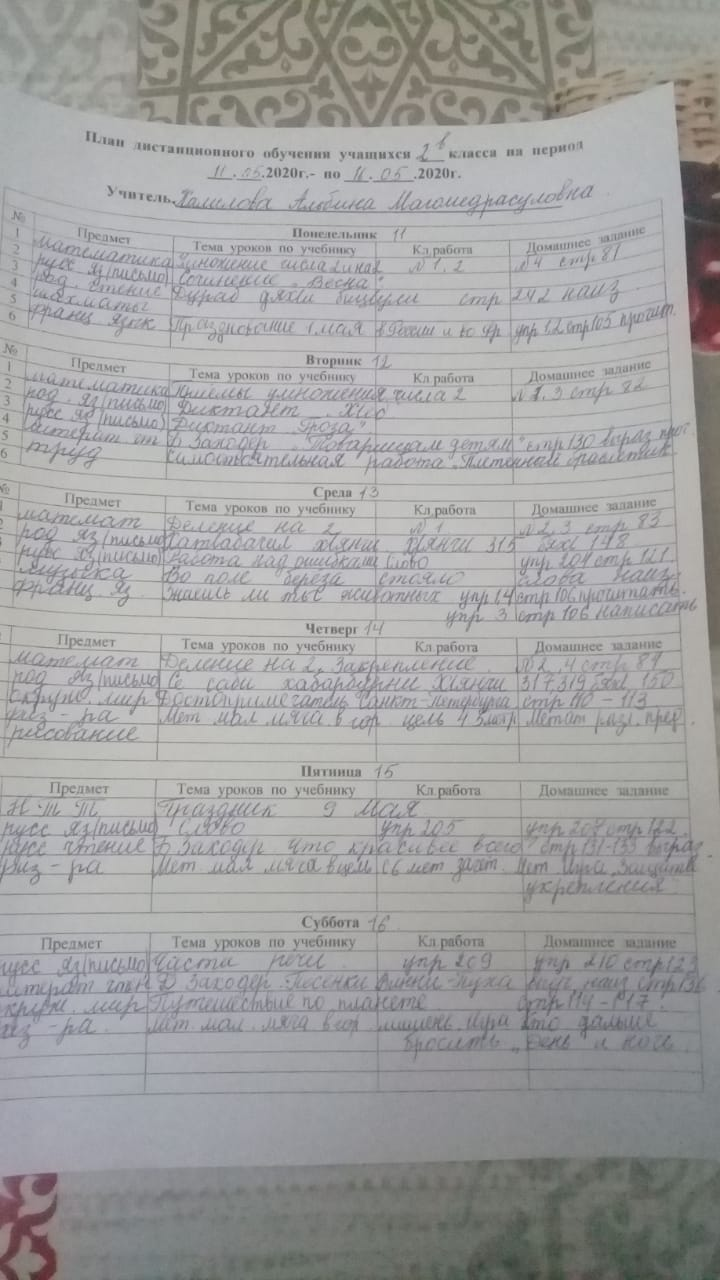 План дистанционного обучения учащихся 2в класса на период
11.05.2020г.- по 16.05.2020г.
Учитель. Халилова Альбина Магомедрасуловна
Понедельник 11
№ Предмет Тема уроков по учебнику Кл.работа Домашнее задание
1 математика Умножение числа 2 и на 2 №1,2 №4 стр 81
2 русс яз/письмо Сочинение "Весна"
3 чтение стр 242 наиз
4 шахматы
5 франц язык Празднование 1 мая в России и во Фр упр 1,2 стр 105 прочит.
6
Вторник 12
№ Предмет Тема уроков по учебнику Кл.работа Домашнее задание
1 математика Приемы умножения числа 2 стр 82
2 род яз/письмо Диктант
3 русс яз/письмо Диктант "Гроза"
4 литерат чт Б Заходер "Товарищам детям" стр 130 выраз проч.
5 труд самостоятельная работа "Плетенный браслетик"
6
Среда 13
№ Предмет Тема уроков по учебнику Кл.работа Домашнее задание
математ Деление на 2 №1 №2,3 стр 83
род яз/письмо хIянчи 315 148
русс яз/письмо Работа над ошибками Слово упр 204 стр 121
музыка Во поле береза стояло слова наиз
франц. яз. Знаешь ли ты животных упр 1,4 стр 106 прочитать.
упр 3 стр 106 написать
Четверг 14
Предмет Тема уроков по учебнику Кл.работа Домашнее задание
математ Деление на 2. Закрепление. №2,4 стр 84
род яз/письмо Се саби хабарбурни хIянчи 317,319 150
окруж. мир Достопримечател Санкт-Петербурга стр 110 - 113
физ - ра Мет мал мяча в гор цель 4 5 метр Метат разл. пред.
рисование
Пятница 15
Предмет Тема уроков по учебнику Кл.работа Домашнее задание
К Т Праздник 9 Мая
русс яз/письмо Слово упр 205 упр 207 стр 122
русс чтение Б Заходер что красивее всего стр 131-133 выраз
физ - ра Мет мал мяча в цель с 6 мет зачет. Мет Игра "Защита
укрепления"
Суббота 16
Предмет Тема уроков по учебнику Кл.работа Домашнее задание
русс яз/письмо Части речи упр 209 упр 210 стр 123
литерат чтен Б Заходер. Песенки Винни-Пуха наиз стр 136
окруж. мир Путешествие по планете стр 114 - 117
физ -ра. мет мал. мяча в гор. мишень. Игра Кто дальше
бросить "День" и ночь.